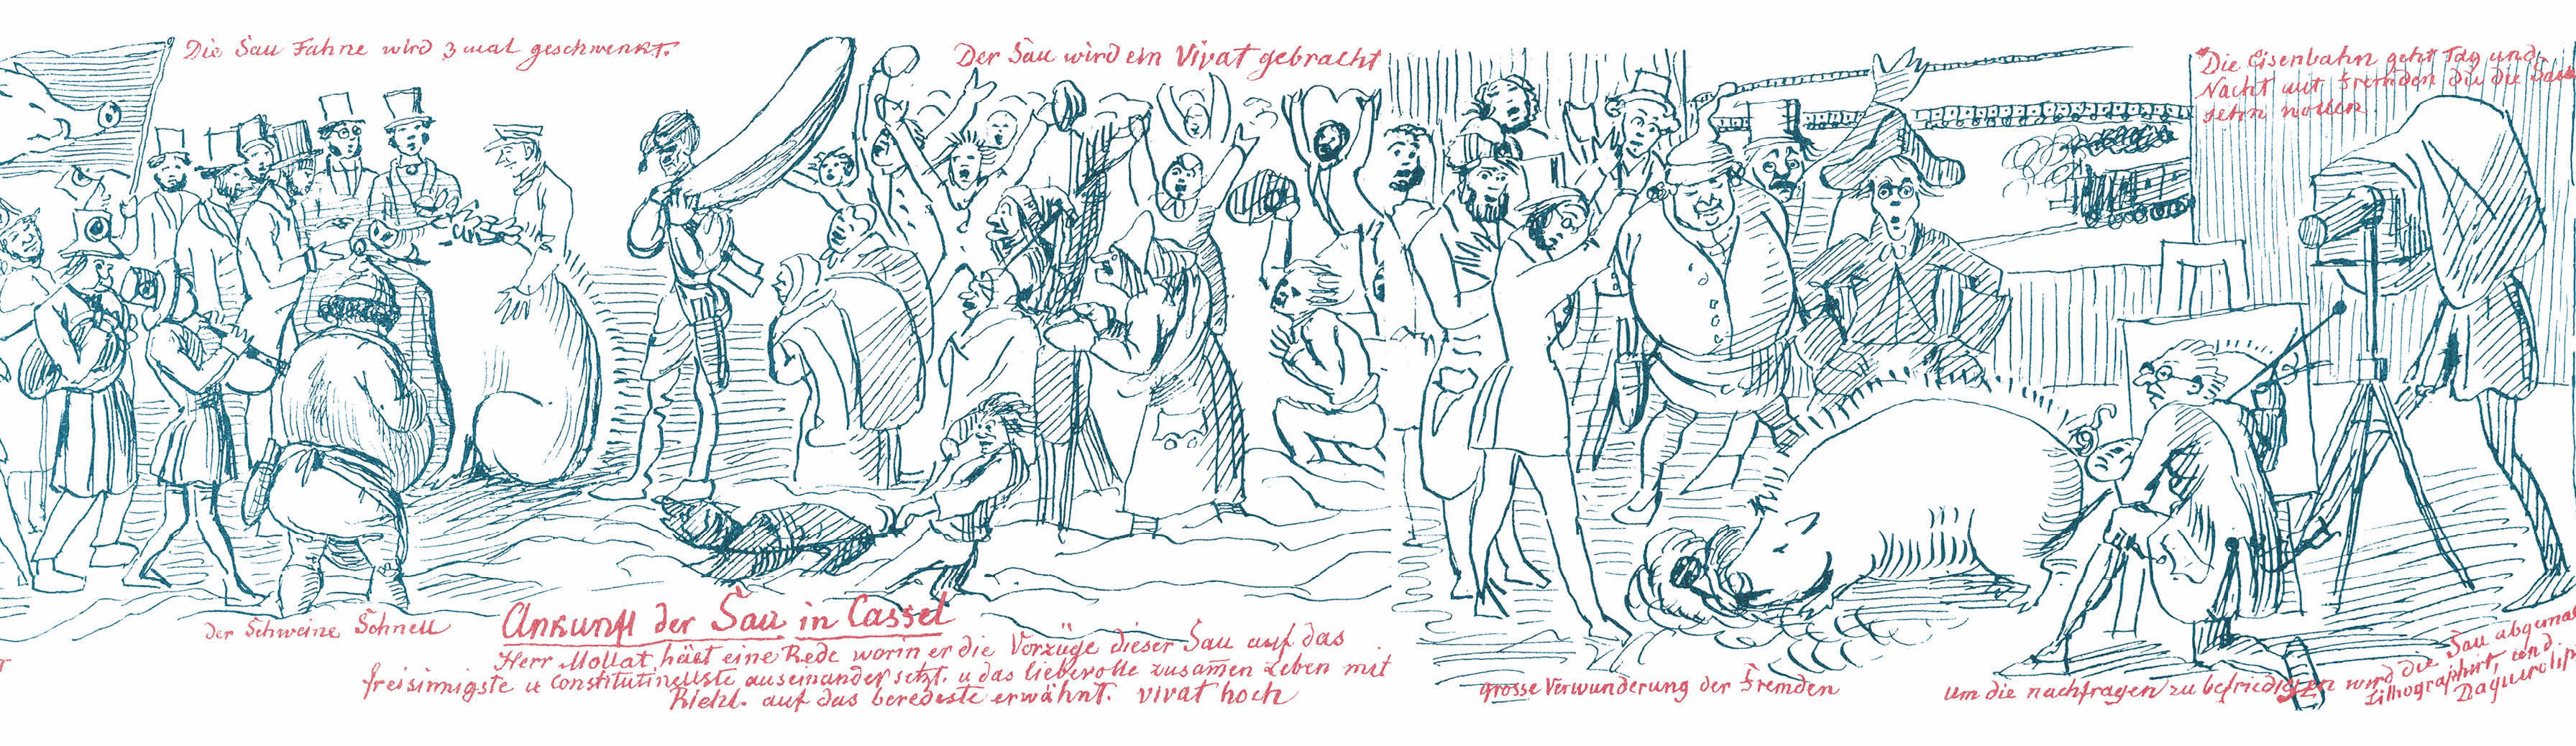 Die Sau Fahne wird 3 mal geschwenkt.
Der Sau wird ein Vivat gebracht
Die Eisenbahn geht Tag und
Nacht mit Fremden die die Sau
sehn wollen.
der Schweine Schnell
Ankunft der Sau in Cassel
Herr Mollat hält eine Rede worin er die Vorzüge dieser Sau auf das
freisinnigste u Constitutinellste auseinander setzt. u das liebevolle zusam̅en Leben mit
Riehl. auf das beredeste erwähnt. vivat hoch
grosse Verwunderung der Fremden
um die nachfragen zu befriedigen wird die Sau abgemal
Lithographirt, und